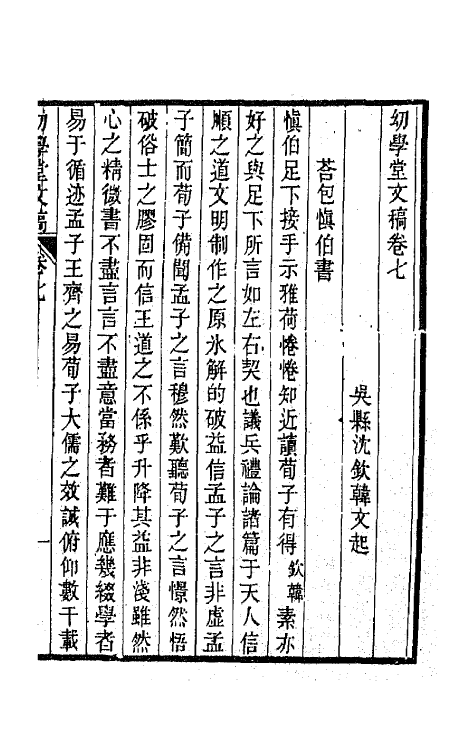 幼學堂文稿卷七
吳縣沈欽韓文起
荅包愼伯書
愼伯足下接手示雅荷惓惓知近讀荀子有得欽韓素亦
好之與足下所言如左右契也議兵禮論諸篇于天人信
順之道文明制作之原氷解的破益信孟子之言非虛孟
子簡而荀子備聞孟子之言穆然歎聽荀子之言憬然悟
破俗士之膠固而信王道之不係乎升降其益非淺雖然
心之精微書不盡言言不盡意當務者難于應幾綴學者
易于循迹孟子王齊之易荀子大儒之效誠俯仰數千載
幼學堂文稿 卷七 一